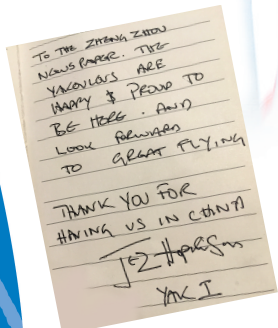 TO THE ZHENG ZHOU
NEWS PAPER. THE
YAKOVLEVS ARE
HAPPY & PROUD TO
BE HERE. AND
LOOK FORWARD
TO GREAT FLYING
THANK YOU FOR
HAVING US IN CHINA
JEZ Hopkinson
YAK I